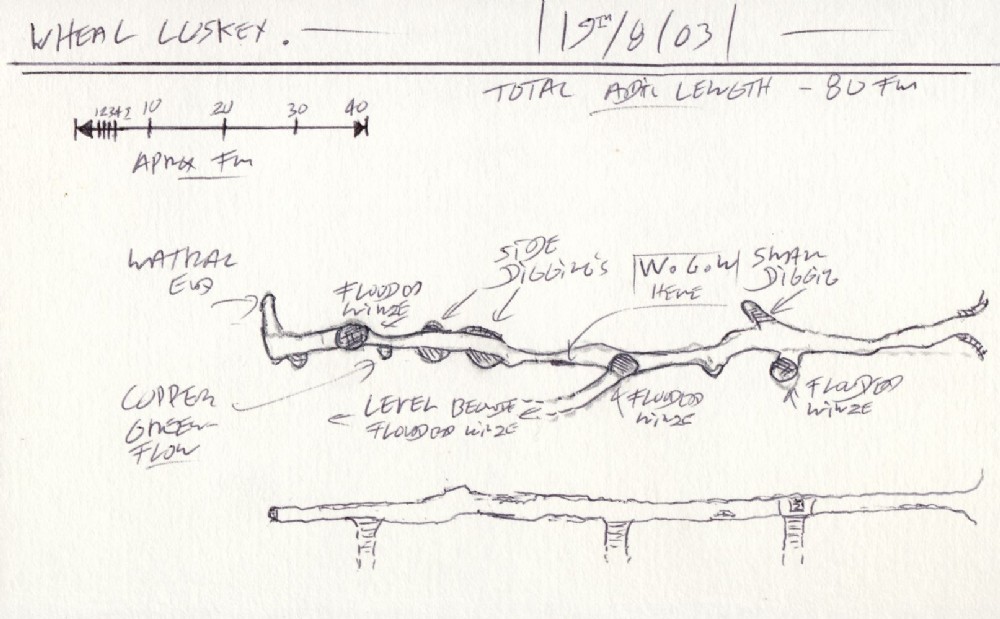 WHEAL LUSKEY.
19TH/8/03
TOTAL ADIT LENGTH - 80 Fm
1 2 3 4 5 10 20 30 40
APROX Fm
NATURAL
END
FLOODED
WINZE
SIDE
DIGGING'S
W.G.W
HERE
SMALL
DIGGIG
COPPER
GREEN
FLOW
← LEVEL BELOW
FLOODED WINZE
FLOODED
WINZE
FLOODED
WINZE